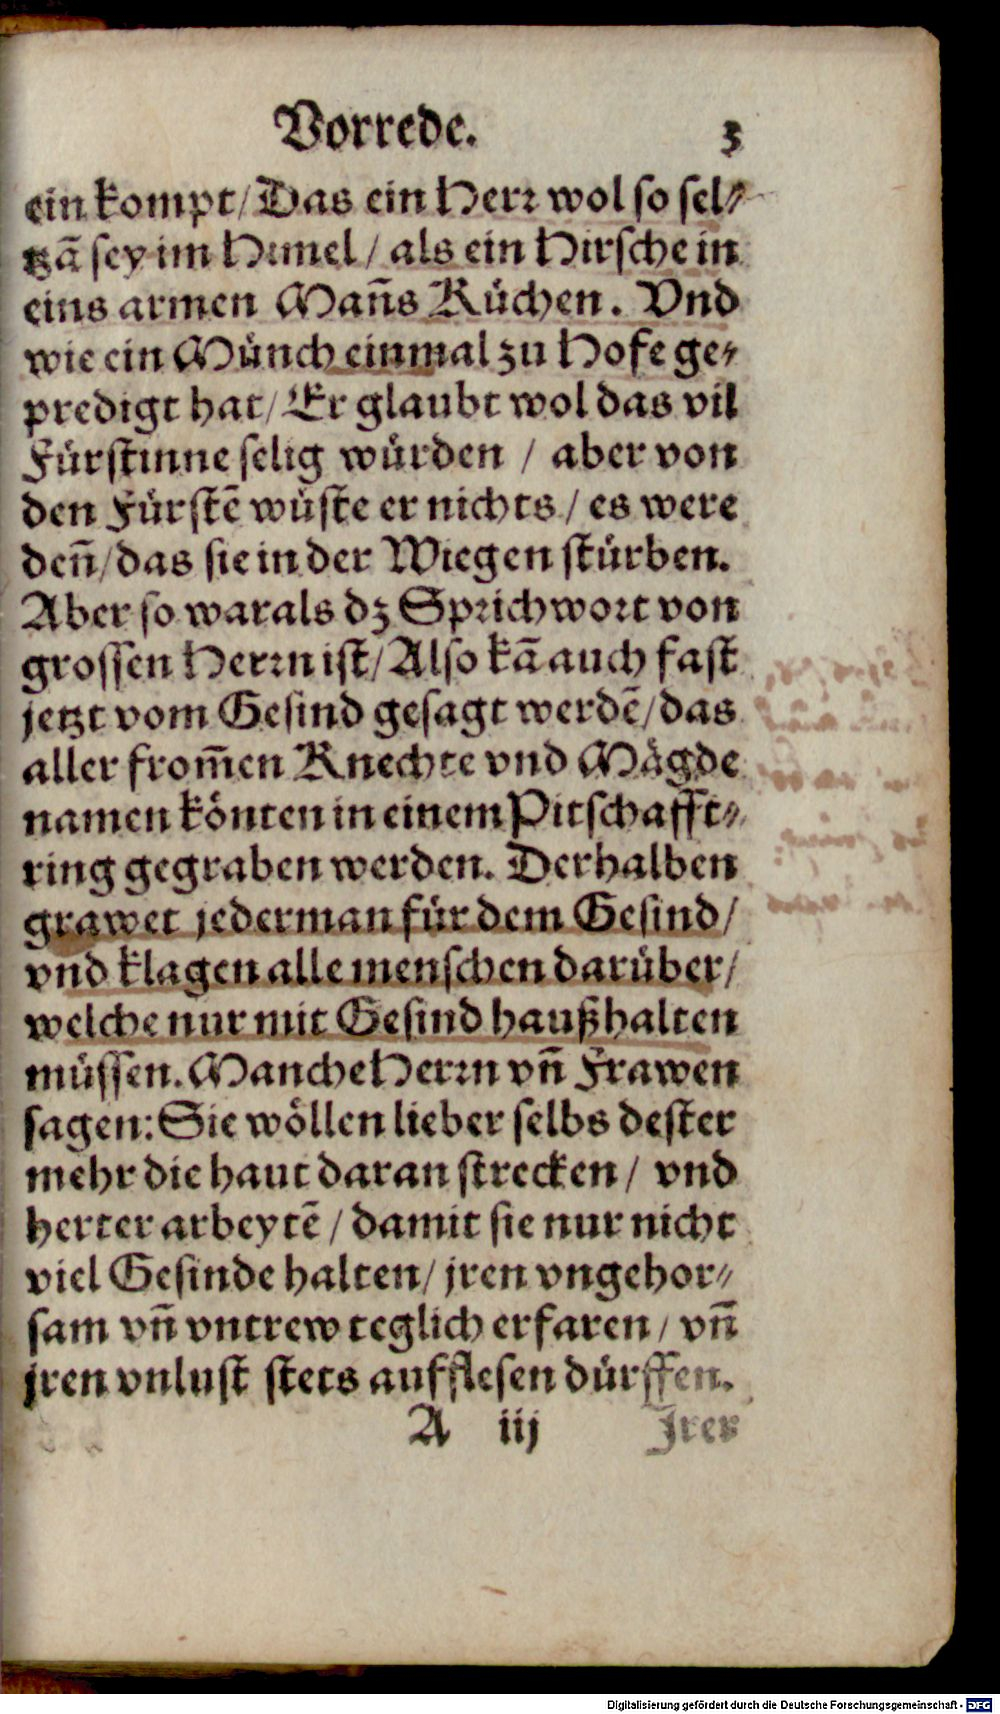 Vorrede. 3
ein kompt/ Das ein Herr wol so sel⸗
tzā sey im Himel / als ein Hirsche in
eins armen Mañs Küchen. Vnd
wie ein Münch einmal zu Hofe ge⸗
predigt hat/ Er glaubt wol das vil
Fürstinne selig würden / aber von
den Fürstē wüste er nichts / es were
deñ/ das sie in der Wiegen stürben.
Aber so war als dz Sprichwort von
grossen Herrn ist/ Also kā auch fast
jetzt vom Gesind gesagt werdē/ das
aller from̄en Knechte vnd Mägde
namen könten in einem Pitschafft⸗
ring gegraben werden. Derhalben
grawet jederman für dem Gesind/
vnd klagen alle menschen darüber/
welche nur mit Gesind haußhalten
müssen. Manche Herrn vñ Frawen
sagen: Sie wöllen lieber selbs dester
mehr die haut daran strecken / vnd
herter arbeytē / damit sie nur nicht
viel Gesinde halten/ jren vngehor⸗
sam vñ vntrew teglich erfaren / vñ
jren vnlust stets aufflesen dürffen.
A iij Jrer
Digitalisierung gefördert durch die Deutsche Forschungsgemeinschaft - DFG